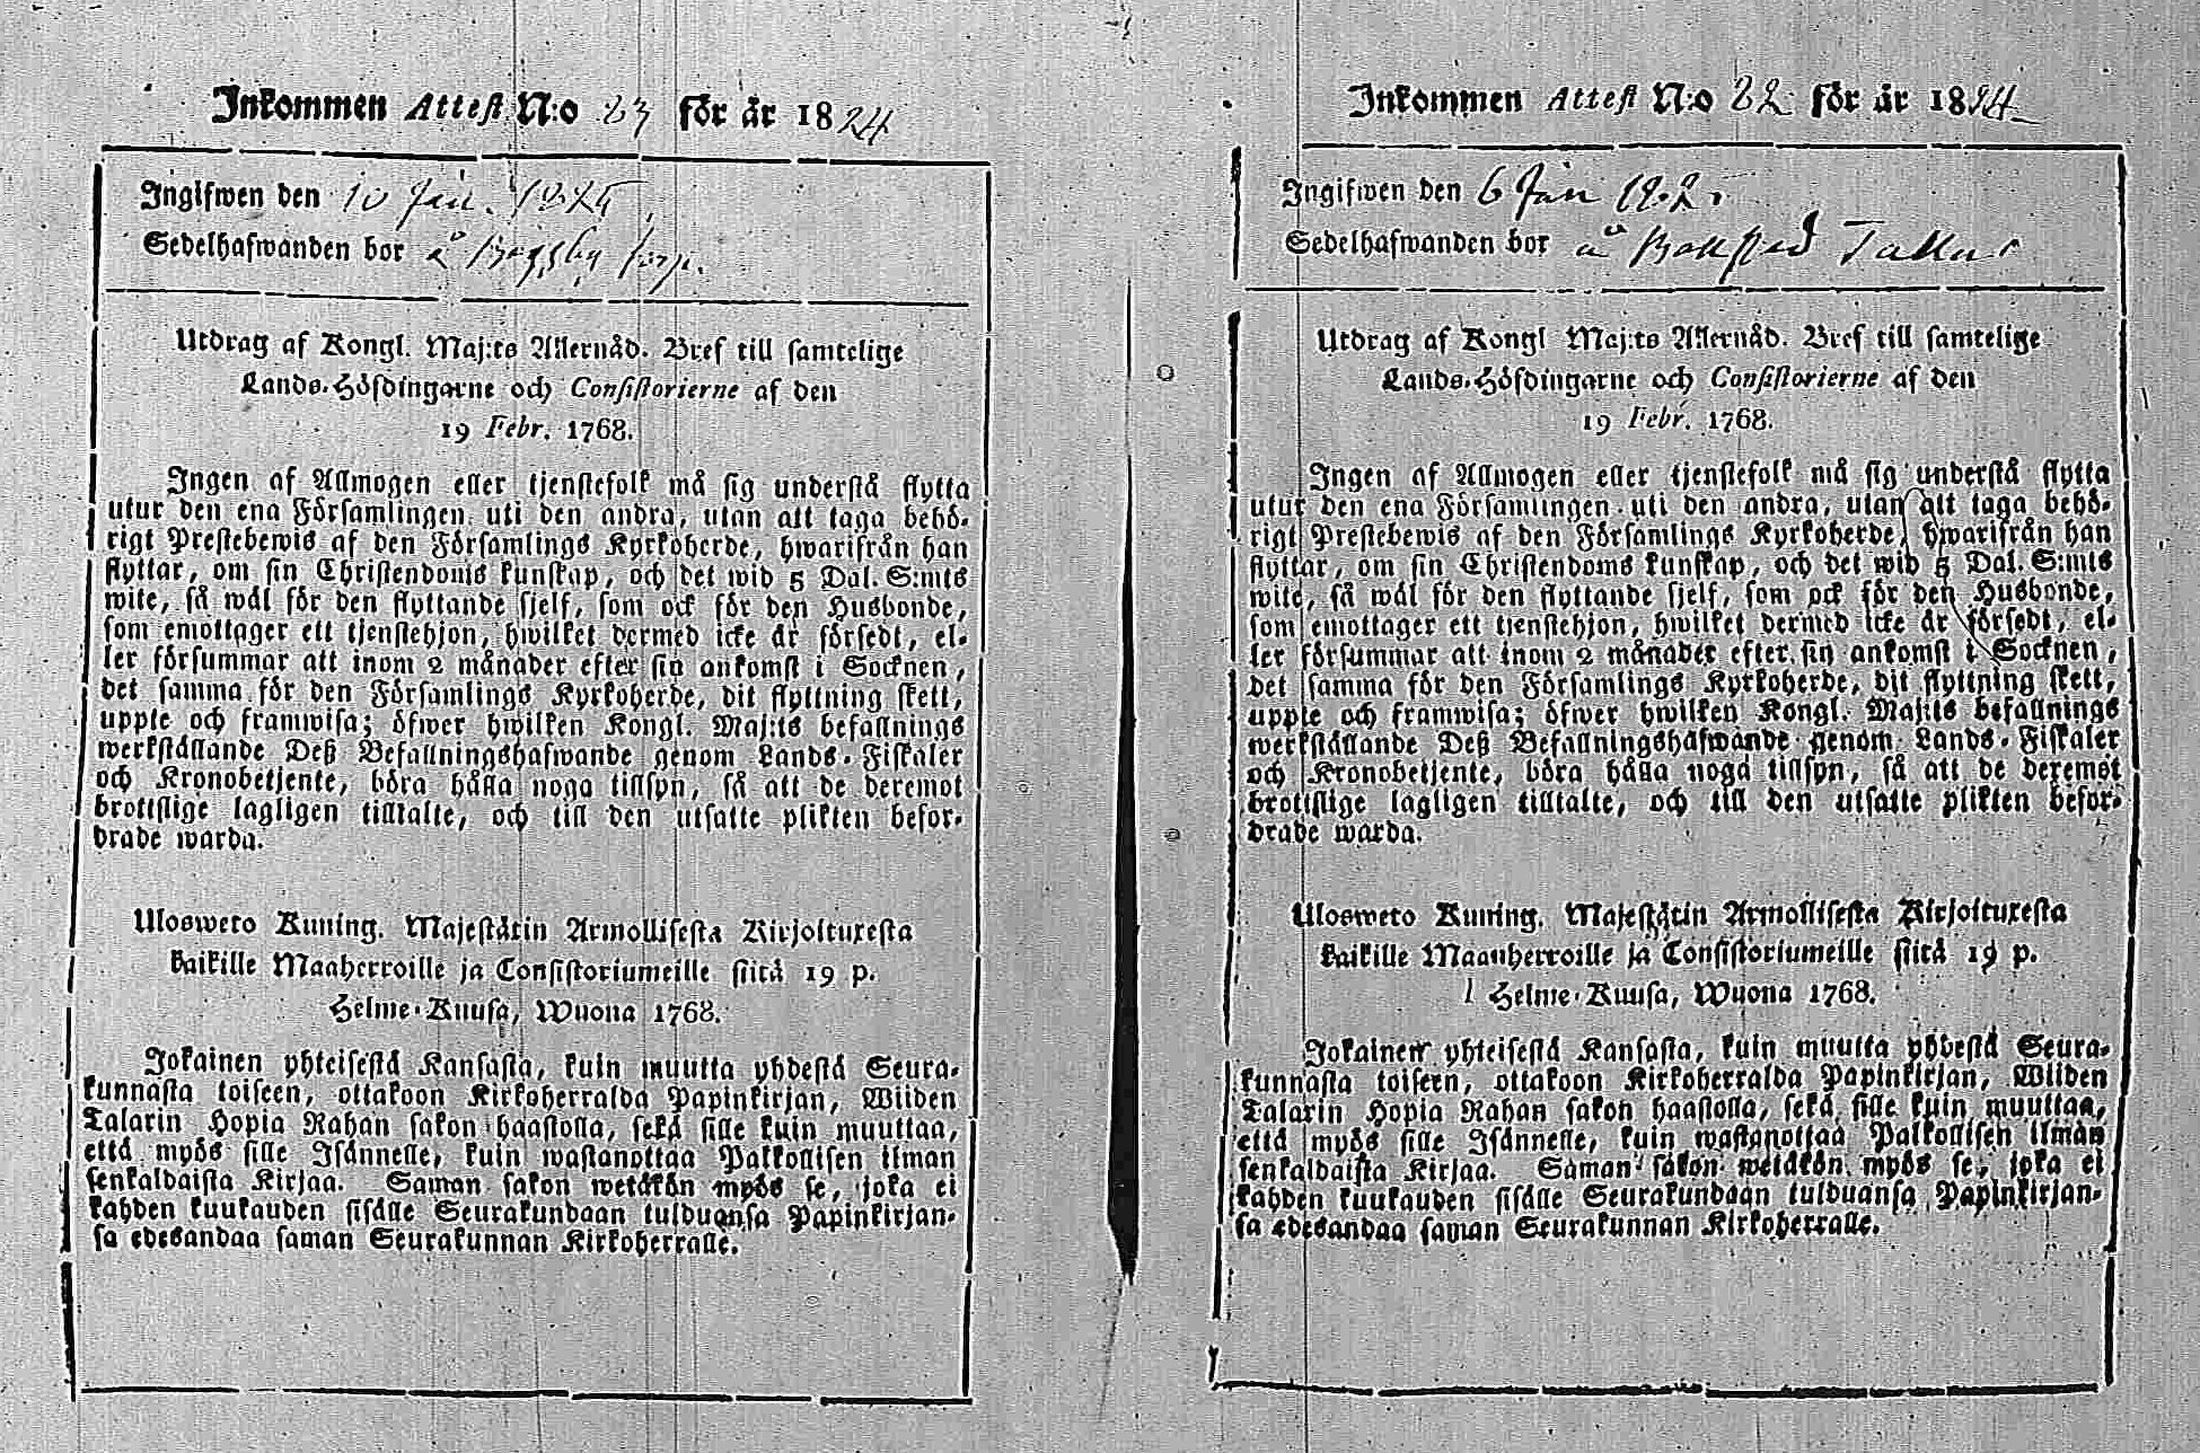 Inkommen Attest N:o 23 för år 1824
Ingifwen den 10 Jan. 1825
Sedelhafwanden bor å
Utdrag af Kongl. Maj:ts Allernåd. Bref till samtelige
Lands-Höfdingarne och Consistorierne af den
19 Febr. 1768.
Ingen af Allmogen eller tjenstefolk må sig understå flytta
utur den ena Församlingen uti den andra, utan att taga behö-
rigt Prestebewis af den Församlings Kyrkoherde, hwarifrån han
flyttar, om sin Christendoms kunskap, och det wid 5 Dal. S:mts
wite, så wäl för den flyttande sjelf, som ock för den Husbonde,
som emottager ett tjenstehjon, hwilket dermed icke är försedt, el-
ler försummar att inom 2 månader efter sin ankomst i Socknen,
det samma för den Församlings Kyrkoherde, dit flyttning skett,
uppte och framwisa; öfwer hwilken Kongl. Maj:ts befallnings
werkställande Deß Befallningshafwande genom Lands-Fiskaler
och Kronobetjente, böra hålla noga tillsyn, så att de deremot
brottslige lagligen tilltalte, och till den utsatte plikten befor-
drade warda.
Ulosweto Kuning. Majestätin Armollisesta Kirjoituxesta
kaikille Maaherroille ja Consistoriumeille siitä 19 p.
Helme-Kuusa, Wuona 1768.
Jokainen yhteisestä Kansasta, kuin muutta yhdestä Seura-
kunnasta toiseen, ottakoon Kirkoherralda Papinkirjan, Wiiden
Talarin Hopia Rahan sakon haastolla, sekä sille kuin muuttaa,
että myös sille Isännelle, kuin wastanottaa Palkollisen ilman
senkaldaista Kirjaa. Saman sakon wetäkön myös se, joka ei
kahden kuukauden sisälle Seurakundaan tulduansa Papinkirjan-
sa edesandaa saman Seurakunnan Kirkoherralle.
Inkommen Attest N:o 22 för år 1824
Ingifwen den 6 Jan 1825
Sedelhafwanden bor å
Utdrag af Kongl Maj:ts Allernåd. Bref till samtelige
Lands-Höfdingarne och Consistorierne af den
19 Febr. 1768.
Ingen af Allmogen eller tjenstefolk må sig understå flytta
utur den ena Församlingen uti den andra, utan att taga behö-
rigt Prestebewis af den Församlings Kyrkoherde, hwarifrån han
flyttar, om sin Christendoms kunskap, och det wid 5 Dal. S:mts
wite, så wäl för den flyttande sjelf, som ock för den Husbonde,
som emottager ett tjenstehjon, hwilket dermed icke är försedt, el-
ler försummar att inom 2 månader efter sin ankomst i Socknen,
det samma för den Församlings Kyrkoherde, dit flyttning skett,
uppte och framwisa; öfwer hwilken Kongl. Maj:ts befallnings
werkställande Deß Befallningshafwande genom Lands-Fiskaler
och Kronobetjente, böra hålla noga tillsyn, så att de deremot
brottslige lagligen tilltalte, och till den utsatte plikten befor-
drade warda.
Ulosweto Kuning. Majestätin Armollisesta Kirjoituxesta
kaikille Maanherroille ja Consistoriumeille siitä 19 p.
Helme-Kuusa, Wuona 1768.
Jokainen yhteisestä Kansasta, kuin muutta yhdestä Seura-
kunnasta toiseen, ottakoon Kirkoherralda Papinkirjan, Wiiden
Talarin Hopia Rahan sakon haastolla, sekä sille kuin muuttaa,
että myös sille Isännelle, kuin wastanottaa Palkollisen ilman
senkaldaista Kirjaa. Saman sakon wetäkön myös se, joka ei
kahden kuukauden sisälle Seurakundaan tulduansa Papinkirjan-
sa edesandaa saman Seurakunnan Kirkoherralle.